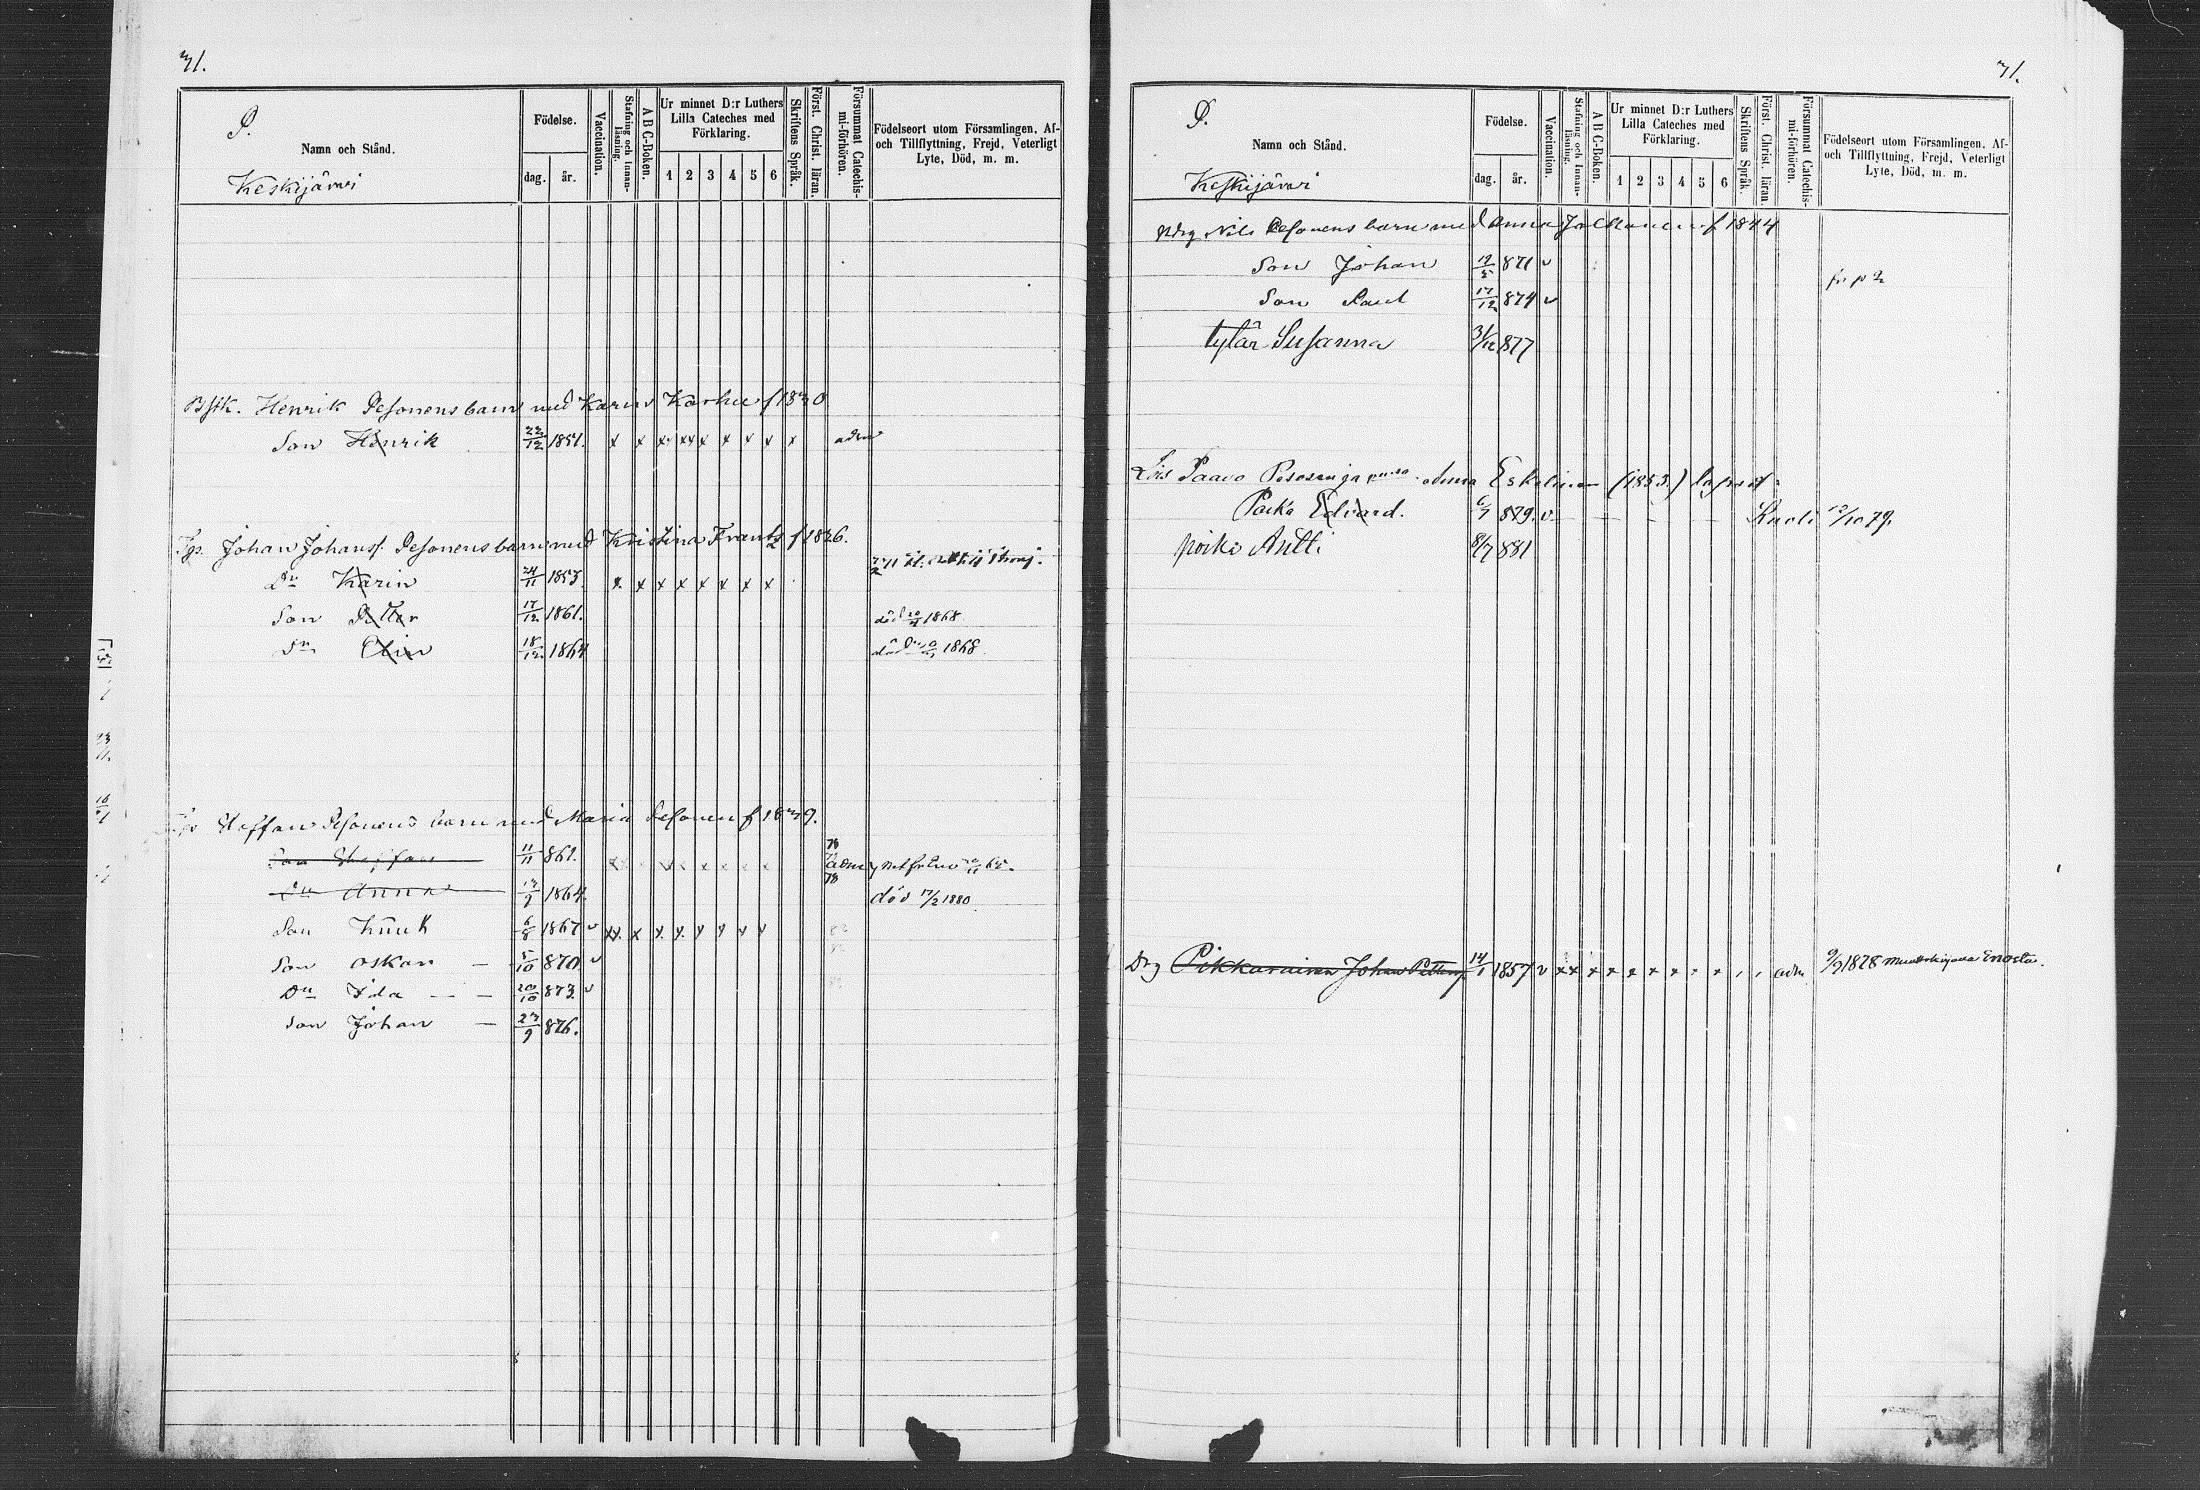 31.
P.
Namn och Stånd.
Keskijärvi
Födelse.
dag. år.
Vaccination.
Stafning och Innanläsning.
A B C-Boken.
Ur minnet D:r Luthers Lilla Cateches med Förklaring.
1 2 3 4 5 6
Skriftens Språk.
Först. Christ. läran.
Försummat Catechismi-förhören.
Födelseort utom Församlingen, Af- och Tillflyttning, Frejd, Veterligt Lyte, Död, m. m.
Henrik Pesonens barn med Karin Karhu f 1830
Son Henrik 23/12 1851. x x x x x x x x x adm
Johan Johansf. Pesonens barn med Kristina Frants f 1826.
Dr Karin 24/11 1853. x x x x x x x x
Son Petter 17/12 1861. död 1868
Dr Elin 18/12 1864 död 1868
Staffan Pesonens barn med Maria Pesonen f 1839.
Son Staffan 11/11 861. adm
Dr Anna 13/9 1864. 78 död 17/2 1880
Son Henrik 6/8 1867 v xx x x x x x x x
Son Oskar — 5/10 870 v
Dr Ida — — 20/10 873 v
Son Johan — 23/9 876.
31.
P.
Namn och Stånd.
Keskijärvi
Födelse.
dag. år.
Vaccination.
Stafning och Innanläsning.
A B C-Boken.
Ur minnet D:r Luthers Lilla Cateches med Förklaring.
1 2 3 4 5 6
Skriftens Språk.
Först. Christ. läran.
Försummat Catechismi-förhören.
Födelseort utom Församlingen, Af- och Tillflyttning, Frejd, Veterligt Lyte, Död, m. m.
Nils Pesonens barn med Anna f 1844
Son Johan 871 v
Son Paul 17/12 874 v
tytär Susanna 31/12 877
Lois Paavo Pesosen ja Anna Eskelinen (1853) lapset
Poika Edvard. 6/7 879. v — — — Kuoli 12/10 79.
poika Antti 8/7 881
Drg Pikkarainen Johan Petterf 14/1 1857 v x x x x x x x x x adm 9/9 1878 Enosta.